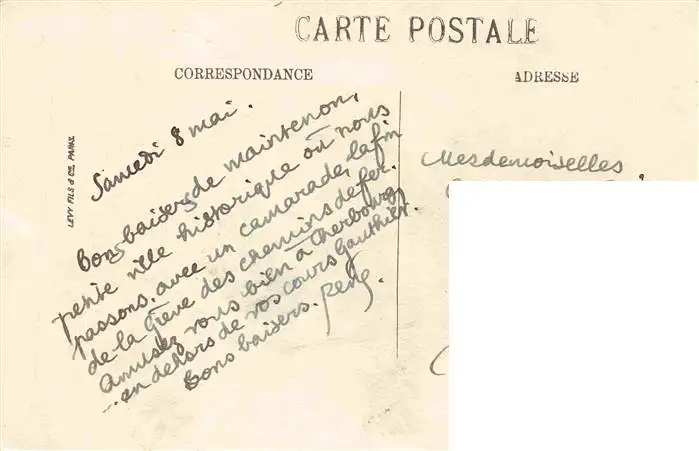 CARTE POSTALE
CORRESPONDANCE
ADRESSE
LEVY FILS & Cie, PARIS
Samedi 8 mai.
Bons baisers de maintenon,
petite ville historique où nous
passons, avec un camarade, la fin
de la grève des chemins de fer.
Amusez vous bien à Cherbourg
en dehors de vos cours Gauthier.
Bons baisers. René
Mesdemoiselles